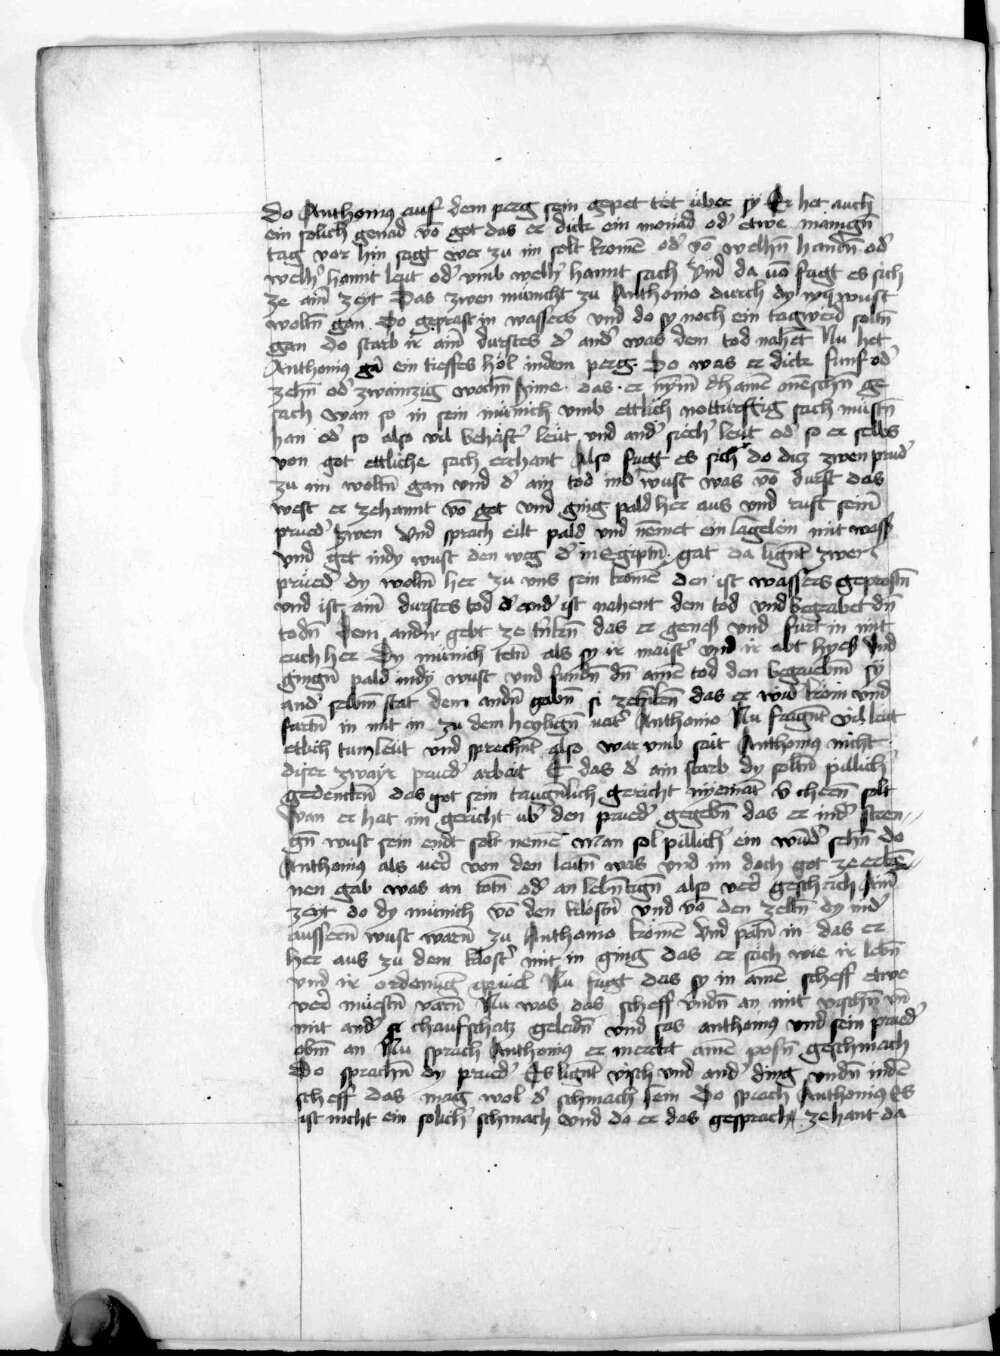 do Anthonius auf dem perg sein gepet tet über sy Er het auch
ein solich genad vō got das er dick ein monad od' etwe manign̄
tag vor hin sagt wer zu im solt komē od' vō welhn̄ handn̄ od'
welh' hannt leut od' vmb welh' hannt sach Vnd da uō fugt es sich
ze aim̄ zeyt Das zwen münicht zu Anthonio durch dy wust
woltn̄ gan Do geprast in wassers vnd do sy noch ein tagwerd soltn̄
gan do starb ir aim̄ durstes d' and' was dem tod nahet Nu het
Anthonius ein tieffes höl indem perg Do was er dick funf od'
zehn̄ od' zwainzig wochn̄ Inne das er nyem̄ menschn̄ ge
sach wan so in sein münich vmb ettlich notturftig sach mustn̄
han od' so also vil behaft' leut vnd and' siech' leut od' so er selbs
von got ettliche sach erchant Also fugt es sich do diz zwen prud'
zu im woltn̄ gan vnd d' ain tod ind' wust was vō durst das
west er zehannt vō got vnd ging pald her aus vnd ruft seim̄
prued' zwen Vnd sprach eilt pald vnd nēmet ein lagelein mit wass'
vnd get indy wust den weg d' in Egiptn̄ gat da lignt zwen
prüed' dy woltn̄ her zu vns sein komē den ist wassers geprostn̄
vnd ist aim̄ durstes tod d' and' ist nahent dem tod vnd begrabet dn̄
todn̄ Dem andn̄ gebt ze trikn̄ das er genes vnd furt in mit
euch her Dy münich tetn̄ als sy ir maist' vnd ir abt hyess Vnd
gingn̄ pald indy wust vnd fundn̄ dn̄ ainē tod den begrubn̄ sy
and' selbm̄ stat dem andn̄ gabn̄ si zetrikn̄ das er wid' kom vnd
furtn̄ in mit in zu dem heylign̄ uat' Anthonio Nu fragnt vil leut
etlich tumleut vnd sprechnt also war vmb sait Anthonius nicht
diser zwayr prued' arbait E das d' ain starb dy soltn̄ pillich
gedenckn̄ das got sein taugnlich gericht nyemāt v'cheren solt
Wan er hat im gericht ub' den prued' gegebn̄ das er ind' stren
gn̄ wust sein endt solt nemē Man sol pillich' ein wūd' sehn̄ do
Anthonius als uer̄ von den leutn̄ was vnd im doch got ze erken
nen gab was an totn̄ od' an lebn̄tign̄ also uer̄ geschach Aim̄
zeyt do dy münich vō den klöstn̄ vnd vō den zelln̄ dy ind'
aussern̄ wust warn̄ zu Anthonio komē Vnd patn̄ in das er
her aus zu dem klost' mit in ging das er säch wie ir lebn̄
vnd ir ordenūg geuiel Nu fugt das sy in ainē scheff etwe
uer̄ müestn̄ varn̄ Nu was das scheff vndn̄ an mit vischn̄ vn̄
mit and' chaufschatz geladn̄ vnd sas anthonius vnd sein prued'
obm̄ an Nu sprach Anthonius er merckt ainē posn̄ geschmach
Do sprachn̄ dy prued' Es lignt visch vnd and' ding vndn̄ indē
scheff das mag wol d' schmach sein Do sprach Anthonius Es
ist nicht ein solich' schmach vnd do er das gesprach zehant da